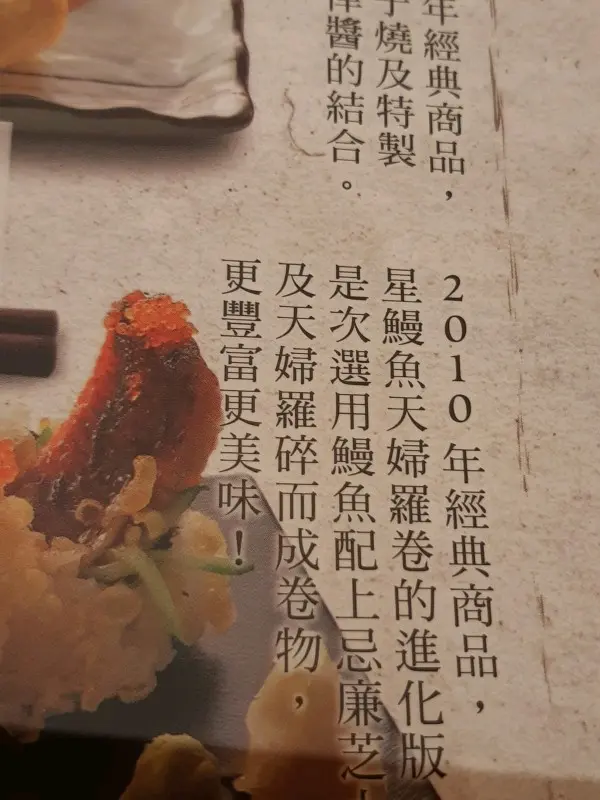 年經典商品，
燒及特製
醬的結合。
2010 年經典商品，
星鰻魚天婦羅卷的進化版
是次選用鰻魚配上忌廉芝
及天婦羅碎而成卷物，
更豐富更美味！